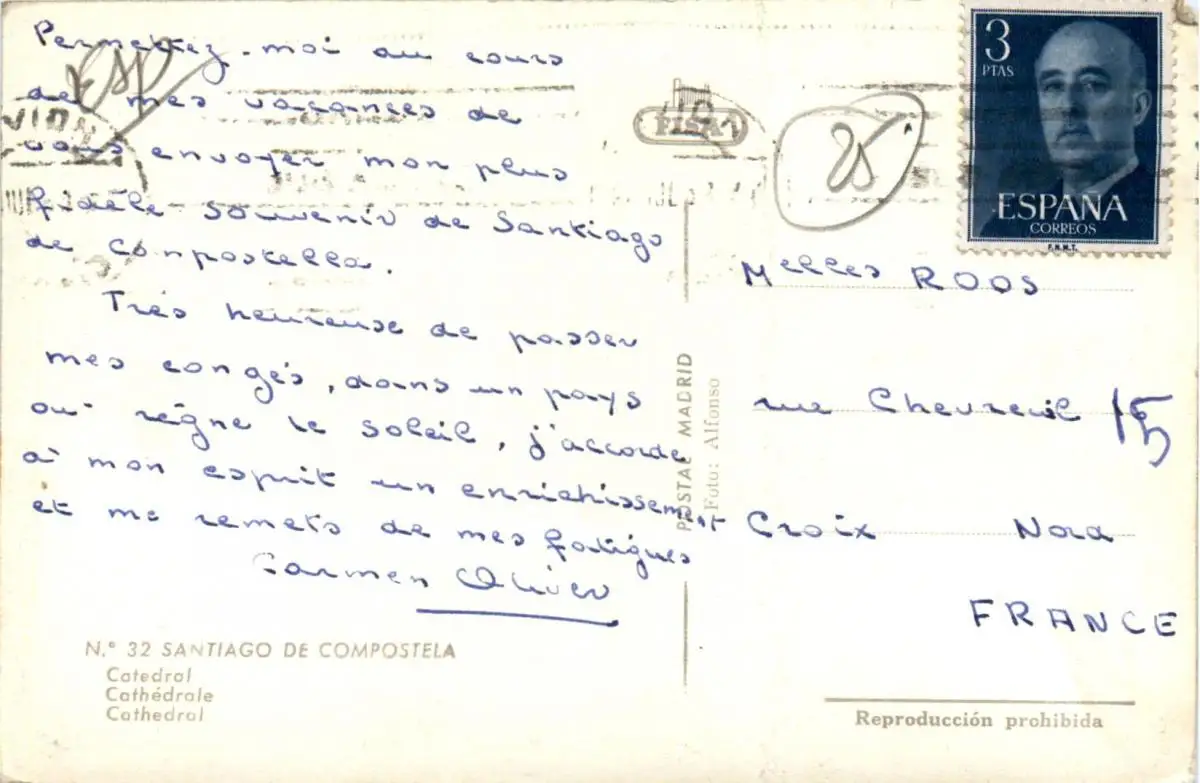 Permettez-moi au cours
de mes vacances de
vous envoyer mon plus
fidèle souvenir de Santiago
de Compostella.
Très heureuse de passer
mes congés, dans un pays
où règne le soleil, j'accorde
à mon esprit un enrichissement
et me remets de mes fatigues
Carmen Oliver
N.° 32 SANTIAGO DE COMPOSTELA
Catedral
Cathédrale
Cathedral
ESP
POSTAL MADRID
Foto: Alfonso
PISA
25
3
PTAS
ESPAÑA
CORREOS
F.N.M.T.
Melles ROOS
rue Chevreuil 15
Croix Nord
FRANCE
Reproducción prohibida